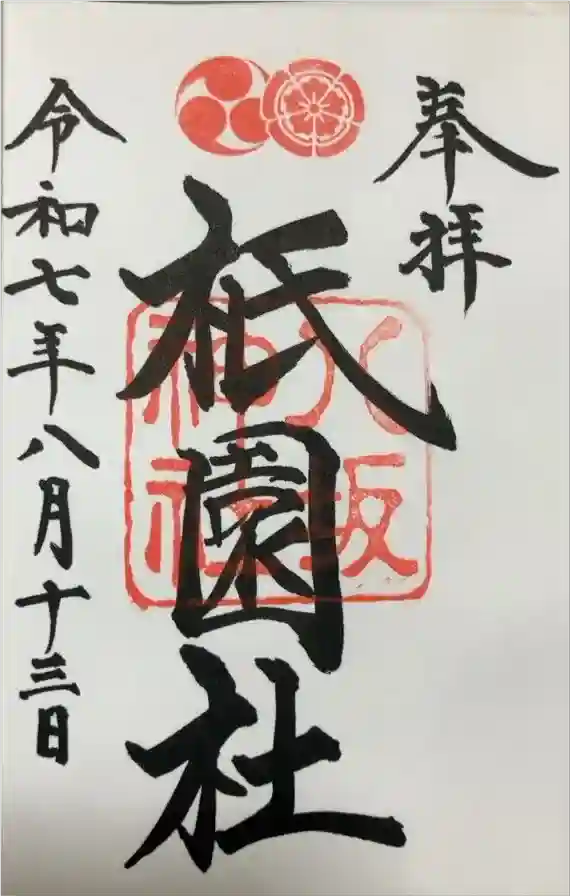 奉拝
祇園社
八坂
神社
令和七年八月十三日